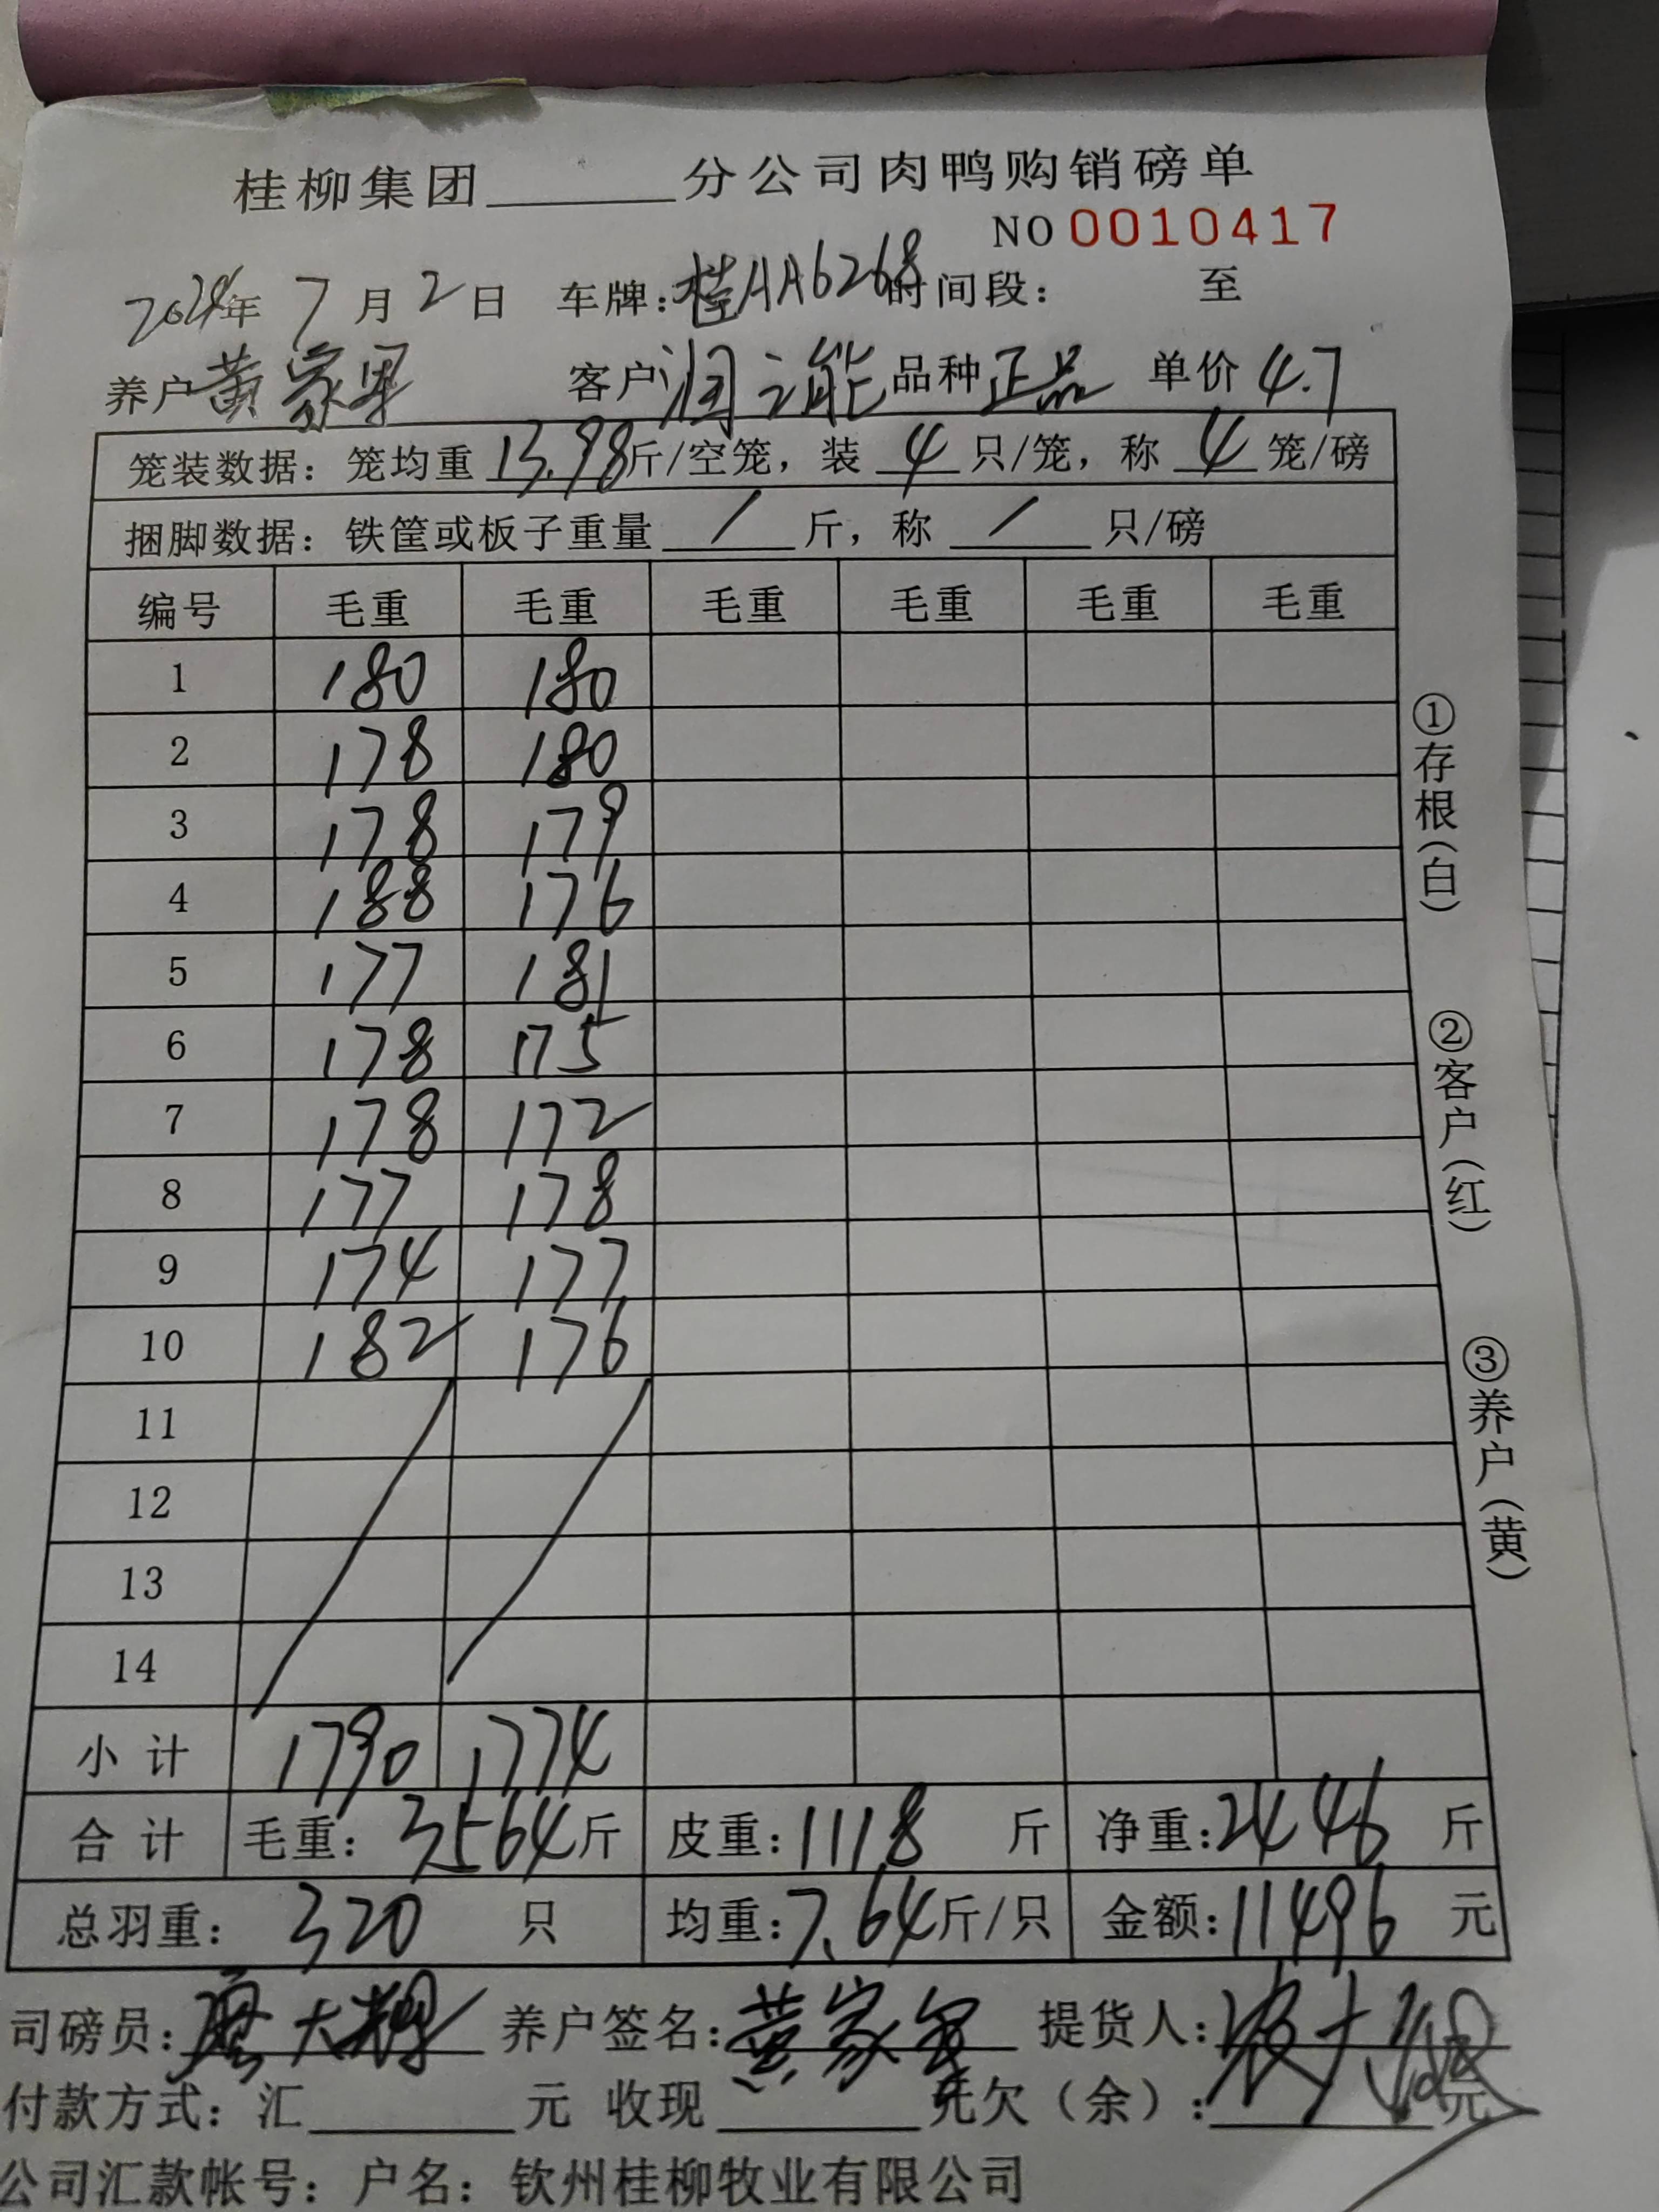 桂柳集团______分公司肉鸭购销磅单
NO 0010417
2024年 7月2日 车牌:桂AA6268 时间段: 至
养户 黄家军 客户 润之能 品种 正品 单价 4.7
笼装数据: 笼均重 13.98 斤/空笼, 装 4 只/笼, 称 4 笼/磅
捆脚数据: 铁筐或板子重量 / 斤, 称 / 只/磅
编号 毛重 毛重 毛重 毛重 毛重 毛重
1 180 180
2 178 180
3 178 179
4 188 176
5 177 181
6 178 175
7 178 172
8 177 178
9 174 177
10 182 176
11
12
13
14
小计 1790 1774
合计 毛重: 3564斤 皮重: 1118 斤 净重: 2446 斤
总羽重: 320 只 均重: 7.64斤/只 金额: 11496 元
司磅员: 养户签名: 黄家军 提货人:
付款方式: 汇______元 收现______元欠(余):______元
公司汇款帐号: 户名: 钦州桂柳牧业有限公司
①存根(白)
②客户(红)
③养户(黄)